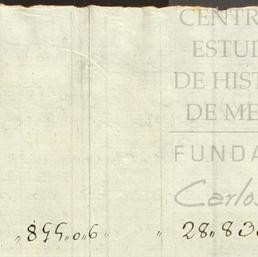 CENTR
ESTUD
DE HIST
DE ME
FUNDA
Carlos
„895„0„6 „ 28„83